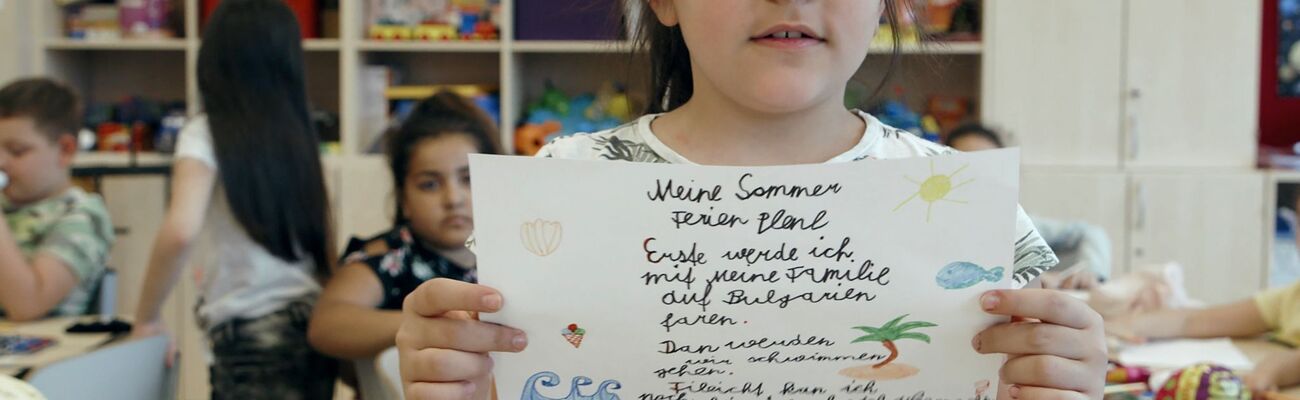 Meine Sommer
Ferien Plenl
Erste werde ich
mit Meine Familie
auf Bulgarien
faren.
Dan werden wir schwimmen
gehen.
Fileicht kan ich